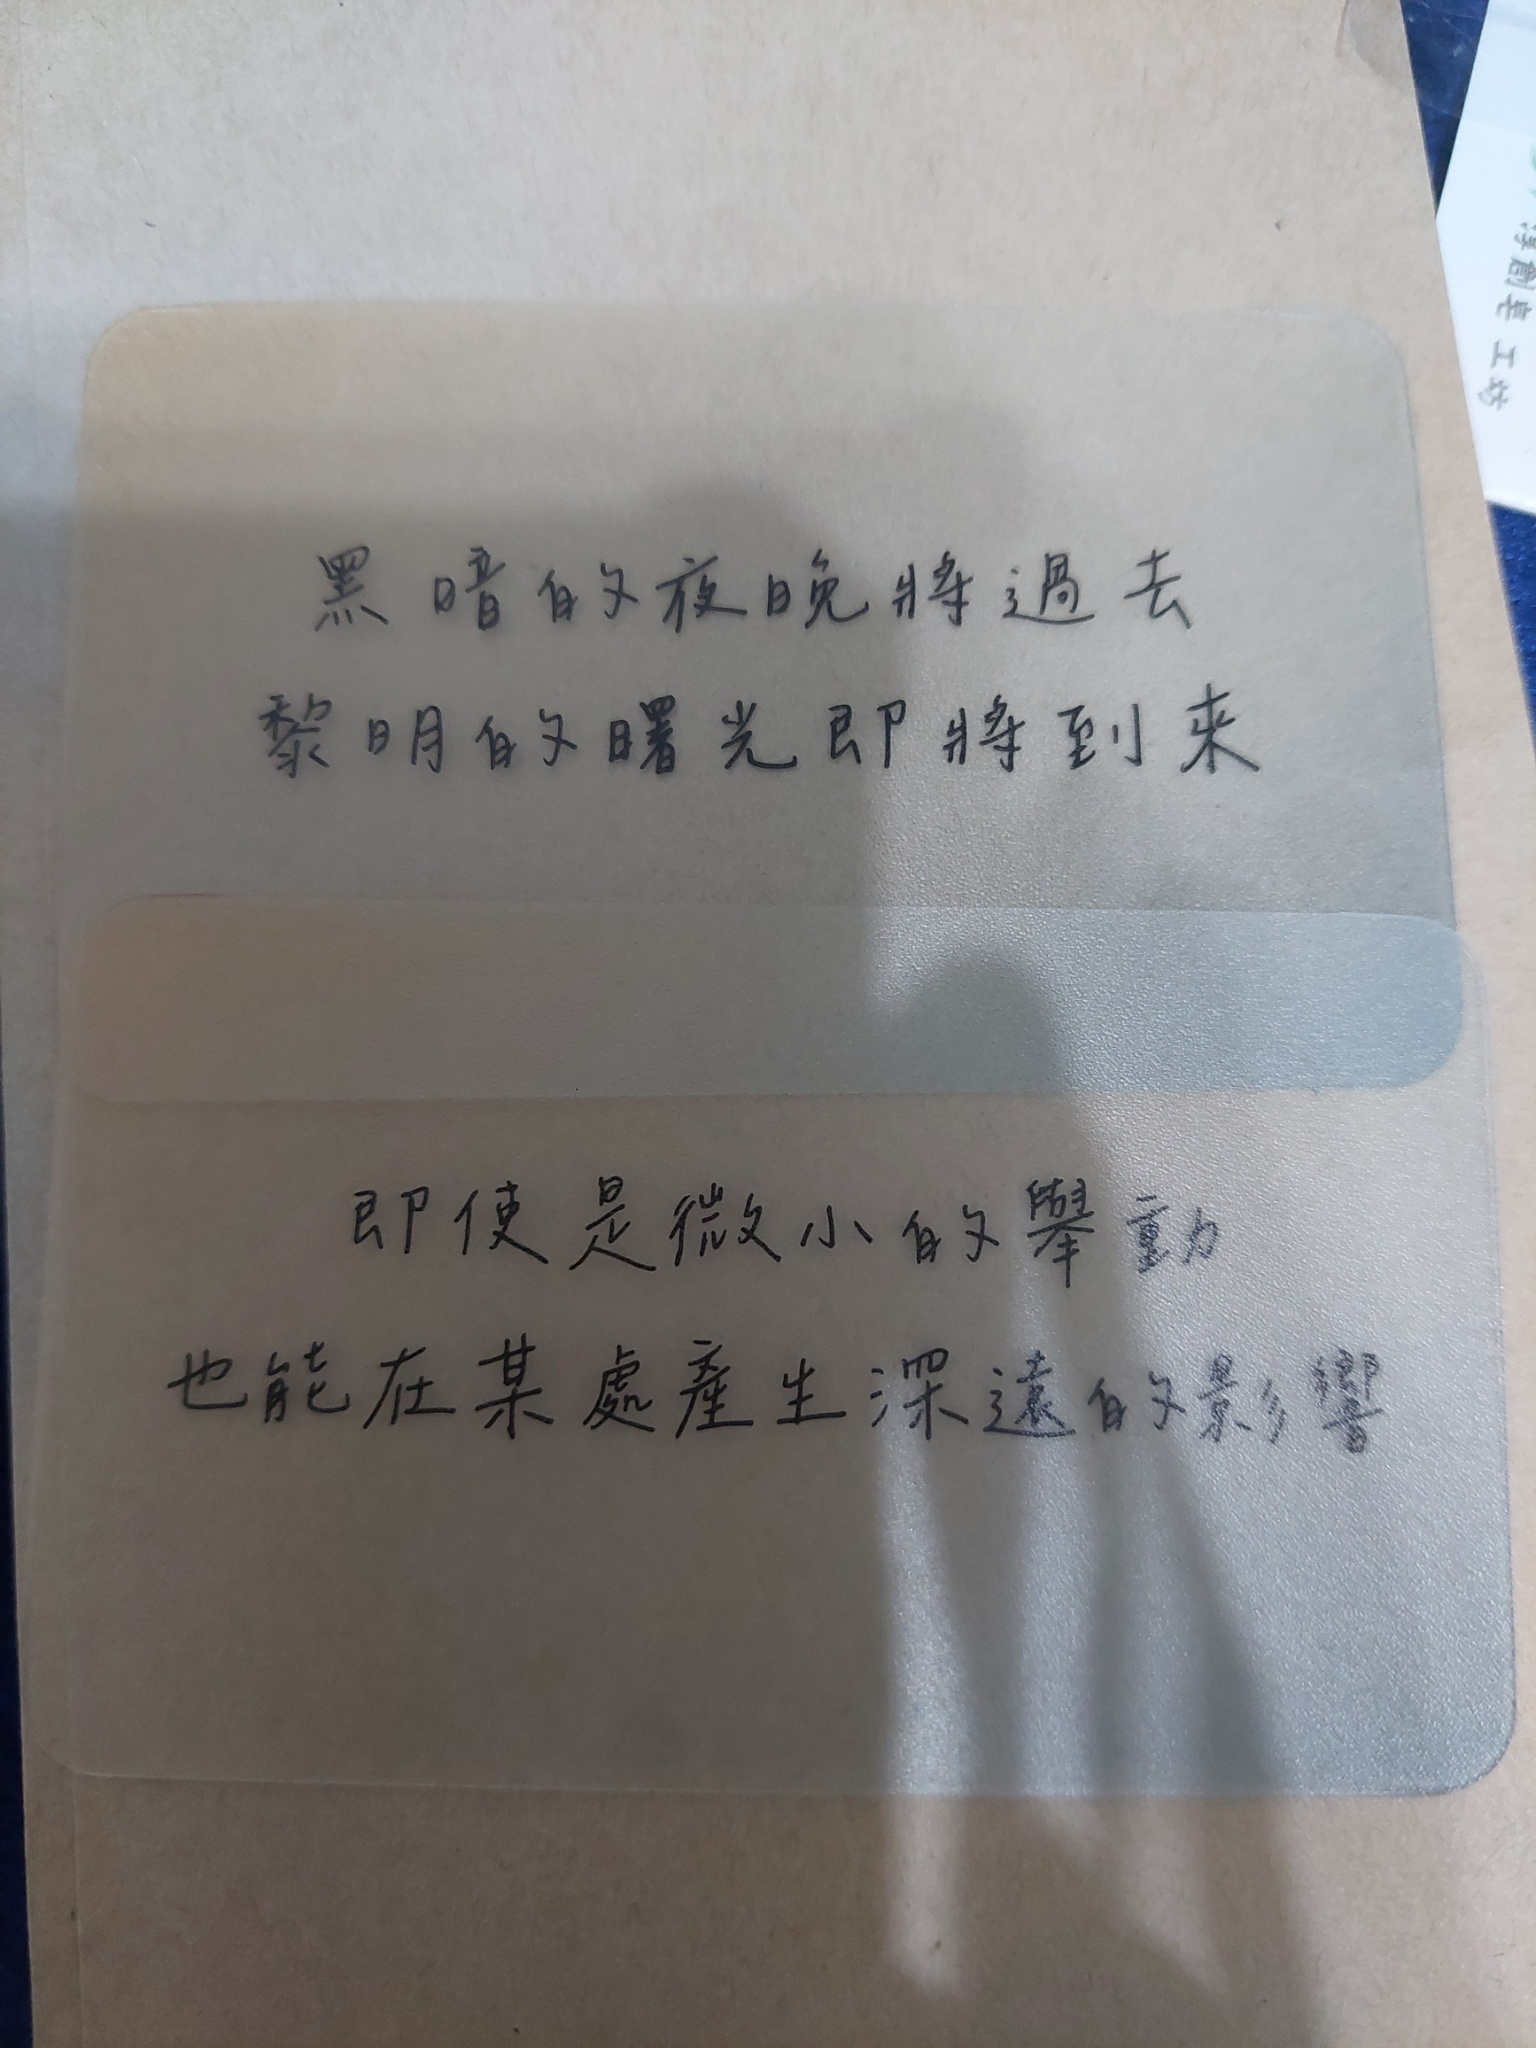 黑暗的夜晚將過去
黎明的曙光即將到來
即使是微小的舉動
也能在某處產生深遠的影響
創皂工坊